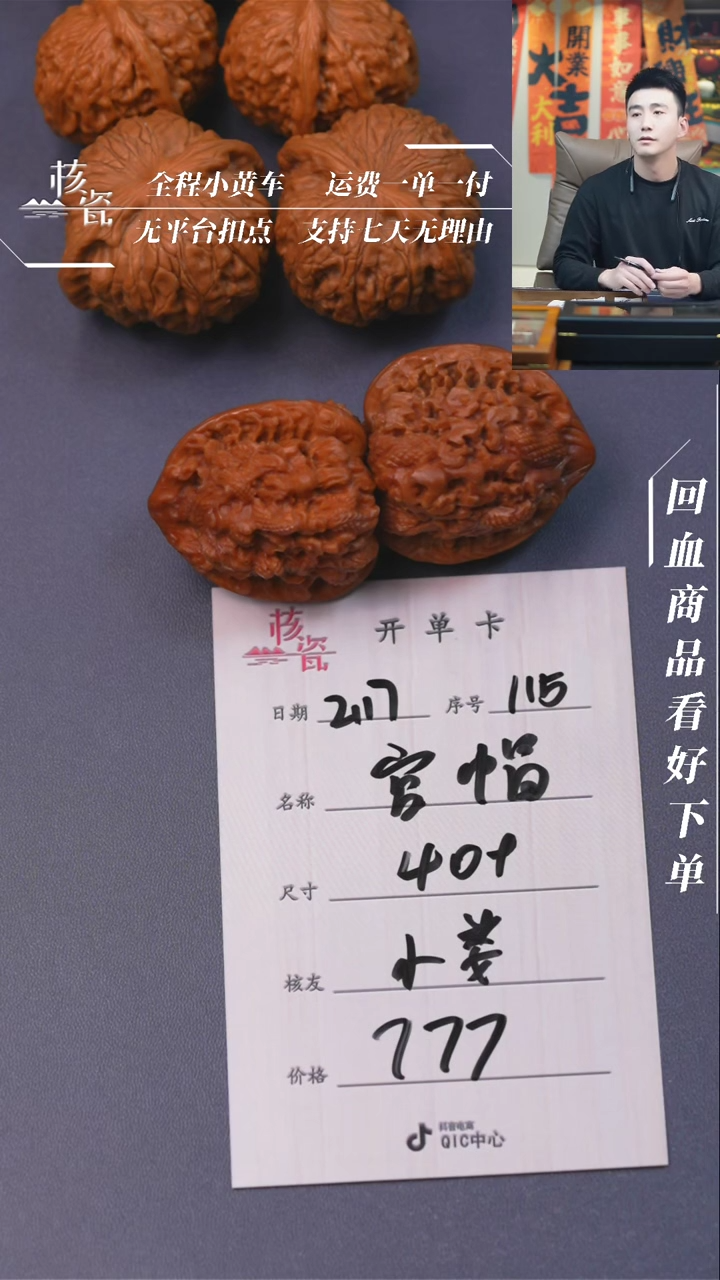 核瓷
全程小黄车 运费一单一付
无平台扣点 支持七天无理由
開業
大吉
大利
事事如意
财
回血商品看好下单
核瓷
开单卡
日期 217 序号 115
名称 官帽
尺寸 40+
核友 小菱
价格 777
抖音电商
QIC中心